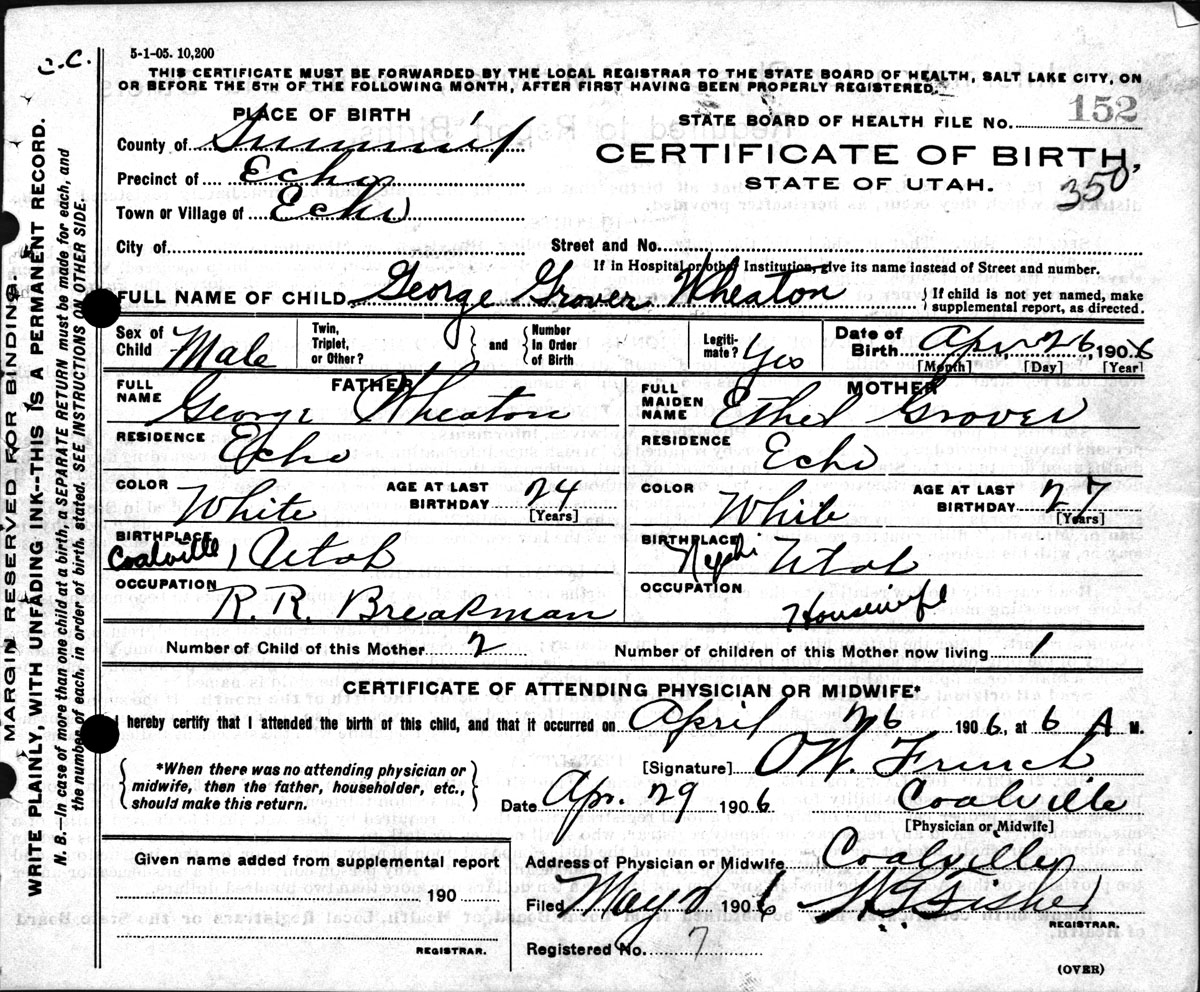 C.C.
5-1-05. 10,200
THIS CERTIFICATE MUST BE FORWARDED BY THE LOCAL REGISTRAR TO THE STATE BOARD OF HEALTH, SALT LAKE CITY, ON
OR BEFORE THE 5TH OF THE FOLLOWING MONTH, AFTER FIRST HAVING BEEN PROPERLY REGISTERED.
PLACE OF BIRTH
STATE BOARD OF HEALTH FILE NO. 152
County of Summit
CERTIFICATE OF BIRTH,
Precinct of Echo
STATE OF UTAH.
350
Town or Village of Echo
City of
Street and No.
If in Hospital or other Institution, give its name instead of Street and number.
FULL NAME OF CHILD George Grover Wheaton
{ If child is not yet named, make
supplemental report, as directed.
Sex of Child Male
Twin, Triplet, or Other? } and { Number In Order of Birth
Legiti-mate? Yes
Date of Birth Apr 26, 1906
[Month] [Day] [Year]
FATHER
FULL NAME George Wheaton
MOTHER
FULL MAIDEN NAME Ethel Grover
RESIDENCE Echo
RESIDENCE Echo
COLOR White AGE AT LAST BIRTHDAY 24 [Years]
COLOR White AGE AT LAST BIRTHDAY 27 [Years]
BIRTHPLACE Coalville, Utah
BIRTHPLACE Nephi Utah
OCCUPATION R. R. Breakman
OCCUPATION Housewife
Number of Child of this Mother 2
Number of children of this Mother now living 1
CERTIFICATE OF ATTENDING PHYSICIAN OR MIDWIFE*
I hereby certify that I attended the birth of this child, and that it occurred on April 26 1906, at 6 A M.
{ *When there was no attending physician or
midwife, then the father, householder, etc.,
should make this return. }
[Signature] O.W. French
Date Apr. 29 1906 Coalville
[Physician or Midwife]
Given name added from supplemental report
190
REGISTRAR.
Address of Physician or Midwife Coalville
Filed May 2 1906
Fisher
REGISTRAR.
Registered No. 7
(OVER)
MARGIN RESERVED FOR BINDING.
WRITE PLAINLY, WITH UNFADING INK--THIS IS A PERMANENT RECORD.
N. B.—In case of more than one child at a birth a SEPARATE RETURN must be made for each, and
the number of each, in order of birth, stated. SEE INSTRUCTIONS ON OTHER SIDE.